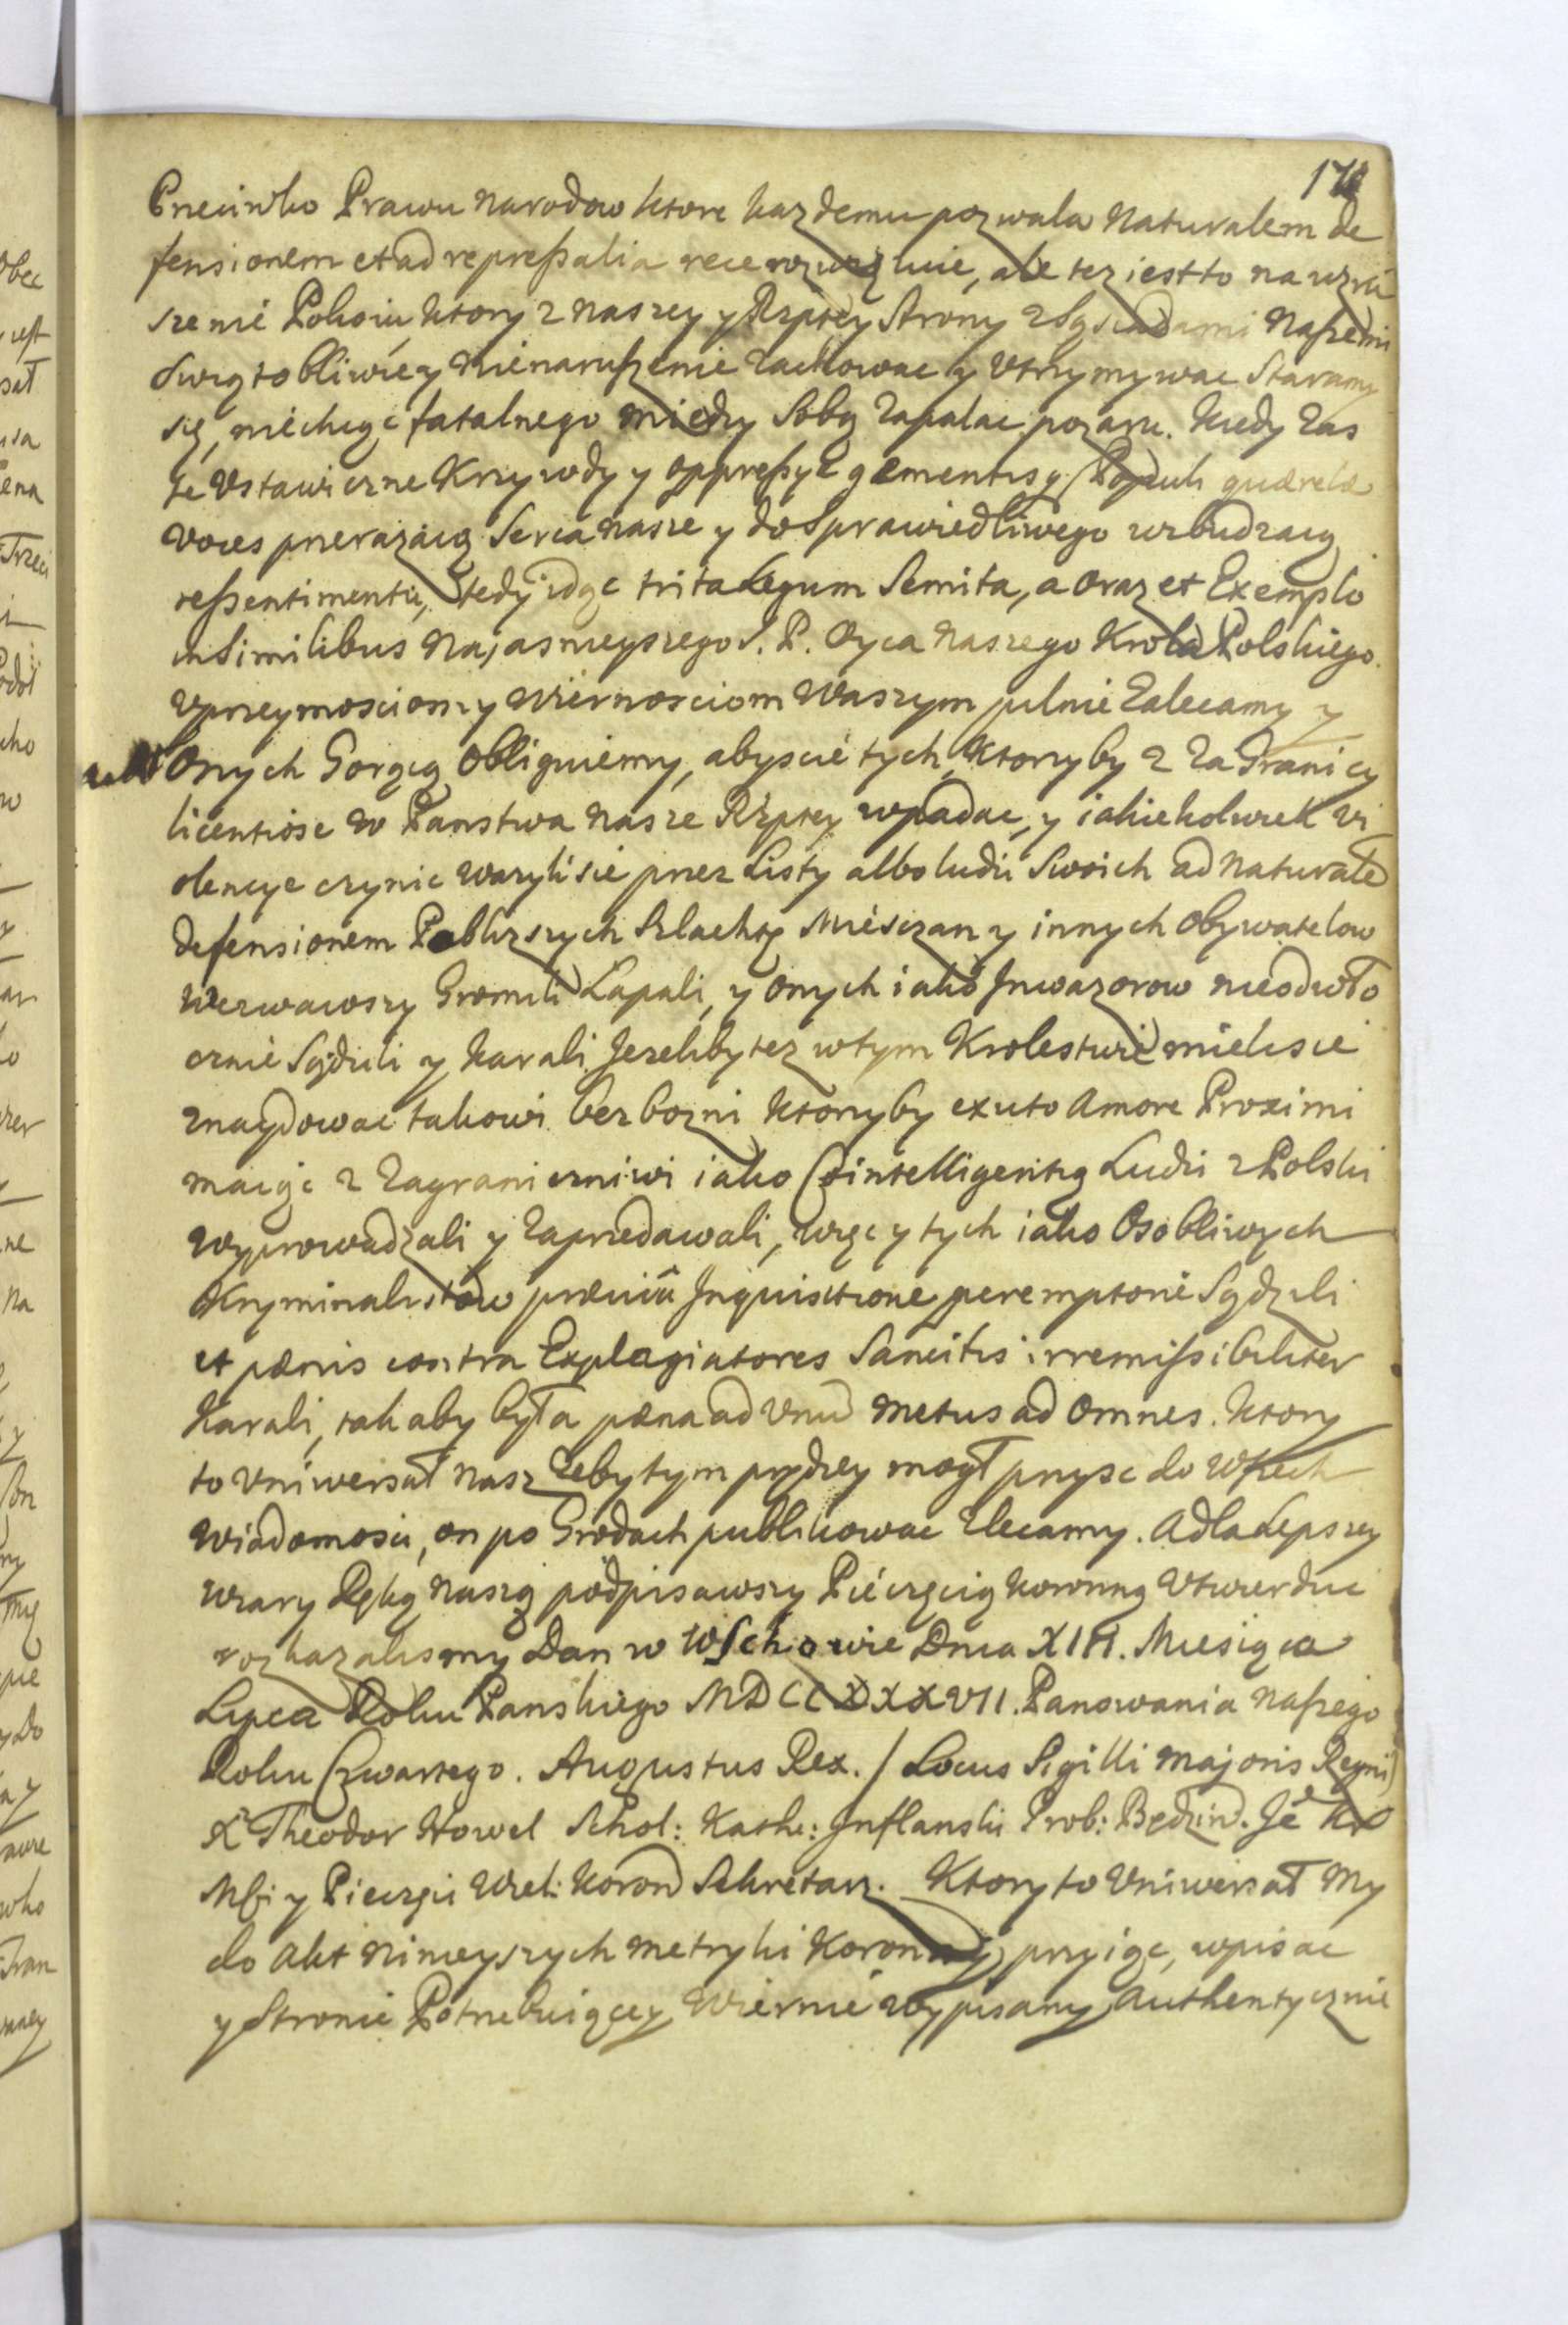 178
Przeciwko Prawu Narodow ktore kazdemu pozwala Naturalem de
fensionem et ad repreſsalia rece rozwiązuie, ale tez iest to na wzru
szenie Pokoiu, ktory z naszey y Rzptey Strony z Sąsiadami Naſzemi
swiątobliwie y nienaruſzenie Zachowac y Utrzymywac Staramy
się, niechcąc fatalnego między Sobą Zapalac pozaru. Kiedy Zas
Te Ustawiczne Krzywdy y oppreſsye gementis Populi quærelæ
voces przerazaią Serca nasze y do Sprawiedliwego wzbudzaią
reſsentimentu, tedy idąc trita Legum Semita, a oraz et Exemplo
in Similibus Najasnieyszego S. P. Oyca Naszego Krola Polskiego
Uprzeymosciom y Wiernosciom Waszym pilnie Zalecamy y
Onych Gorącą Obliguiemy, abyscie tych, ktorzyby z Za Granicy
licentiose w Panstwa Nasze Rzptey wpadac, y iakiekolwiek vi
olencye czynic wazyli sie przez Listy albo ludzi Swoich ad Naturale
defensionem Poblizszych Szlachtę Miesczan y innych Obywatelow
Wezwawszy Gromili Lapali, y Onych iako Inwazorow nieodwło
cznie Sądzili y karali. Jezeliby tez w tym Krolestwie mieli sie
znaydowac takowi bezbozni ktorzyby exuto Amore Proximi
maiąc z Zagranicznemi iako Cointelligentią Ludzi z Polski
wyprowadzali y Zaprzedawali, więc y tych iako Osobliwych
Kryminalistow præviâ Inquisitione peremptorie Sądzili
et pænis contra Explagiatores Sancitis irremiſsibiliter
karali, tak aby była pæna ad Unũ metus ad Omnes. Ktory
to Uniwersał nasz Zeby tym prędzey mogł przysc do Wſzech
wiadomosci, on po Grodach publikowac Zlecamy. A dla Lepszey
Wiary Ręką naszą podpisawszy Pieczęcią koronną Utwierdzic
rozkazalismy Dan w Wschowie Dnia XIII. Miesiąca
Lipca Roku Panskiego MDCCXXXVII. Panowania Naſzego
Roku Czwartego. Augustus Rex. / Locus Sigilli Majoris Regni)
X Theodor Howel Schol: Kath: Inflanski Prob: Będzin. Jẽ Kr
Mśi y Pieczęci Wiel: Koron Sekretarz. Ktory to Uniwersał My
do Akt Ninieyszych Metryki Koronney, przyiąc, wpisac
y Stronie Potrzebuiącey Wiernie wypisany Authentycznie